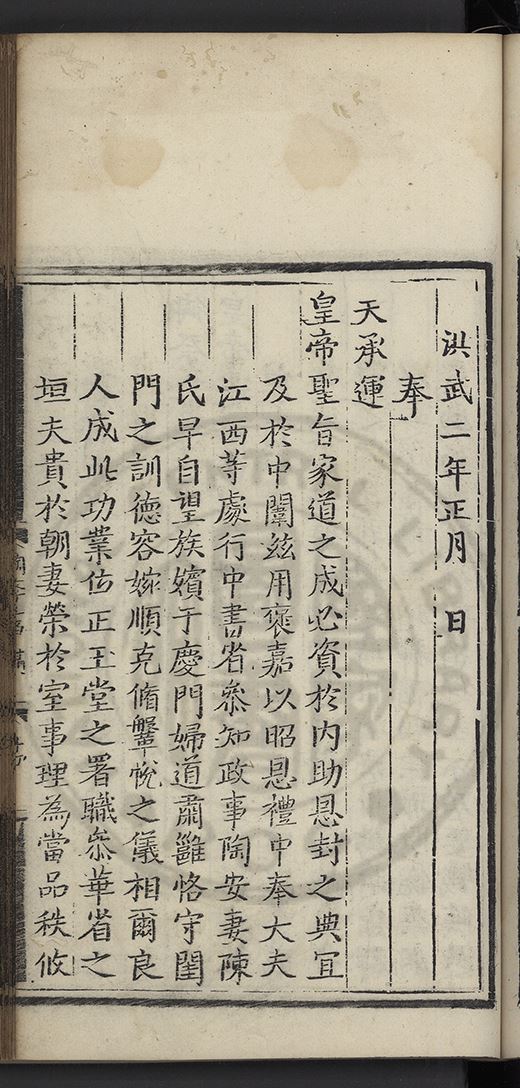 洪武二年正月　日
奉
天承運
皇帝聖旨家道之成必資於內助恩封之典宜
及於中闈兹用褒嘉以昭恩禮中奉大夫
江西等處行中書省叅知政事陶安妻陳
氏早自望族嬪于慶門婦道肅雝恪守閨
門之訓德容婉順克脩鞶帨之儀相爾良
人成此功業位正玉堂之署職叅華省之
垣夫貴於朝妻榮於室事理為當品秩攸